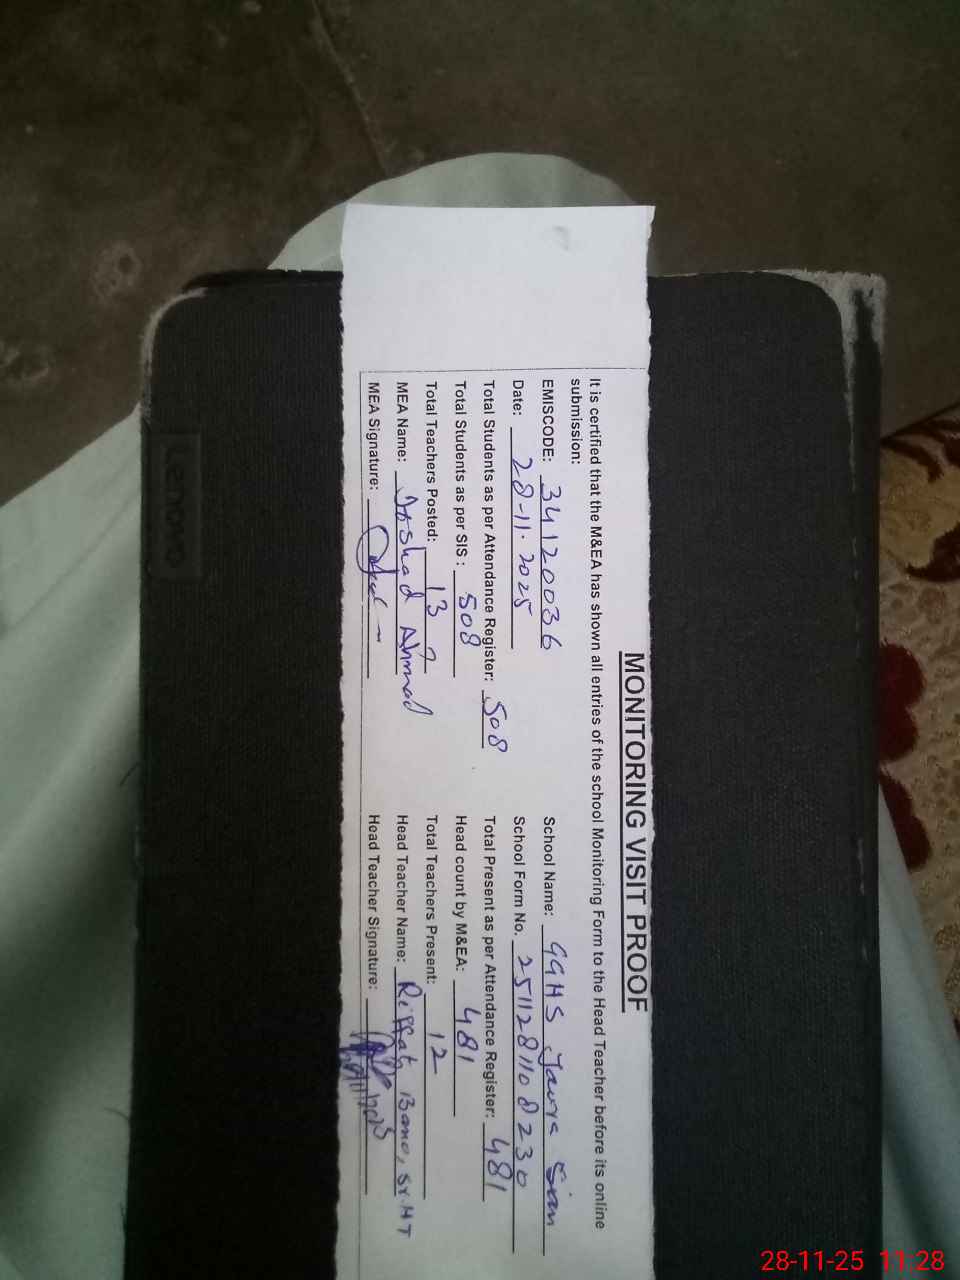 MONITORING VISIT PROOF
It is certified that the M&EA has shown all entries of the school Monitoring Form to the Head Teacher before its online
submission:
EMISCODE: 34120036 School Name: GGHS
Date: 28-11-2025 School Form No. 2511281108230
Total Students as per Attendance Register: 508 Total Present as per Attendance Register: 481
Total Students as per SIS : 508 Head count by M&EA: 481
Total Teachers Posted: 13 Total Teachers Present: 12
MEA Name: Irshad Ahmad Head Teacher Name: Riffat Bano, Sr. HT
MEA Signature: Head Teacher Signature:
Lenovo
28-11-25 11:28